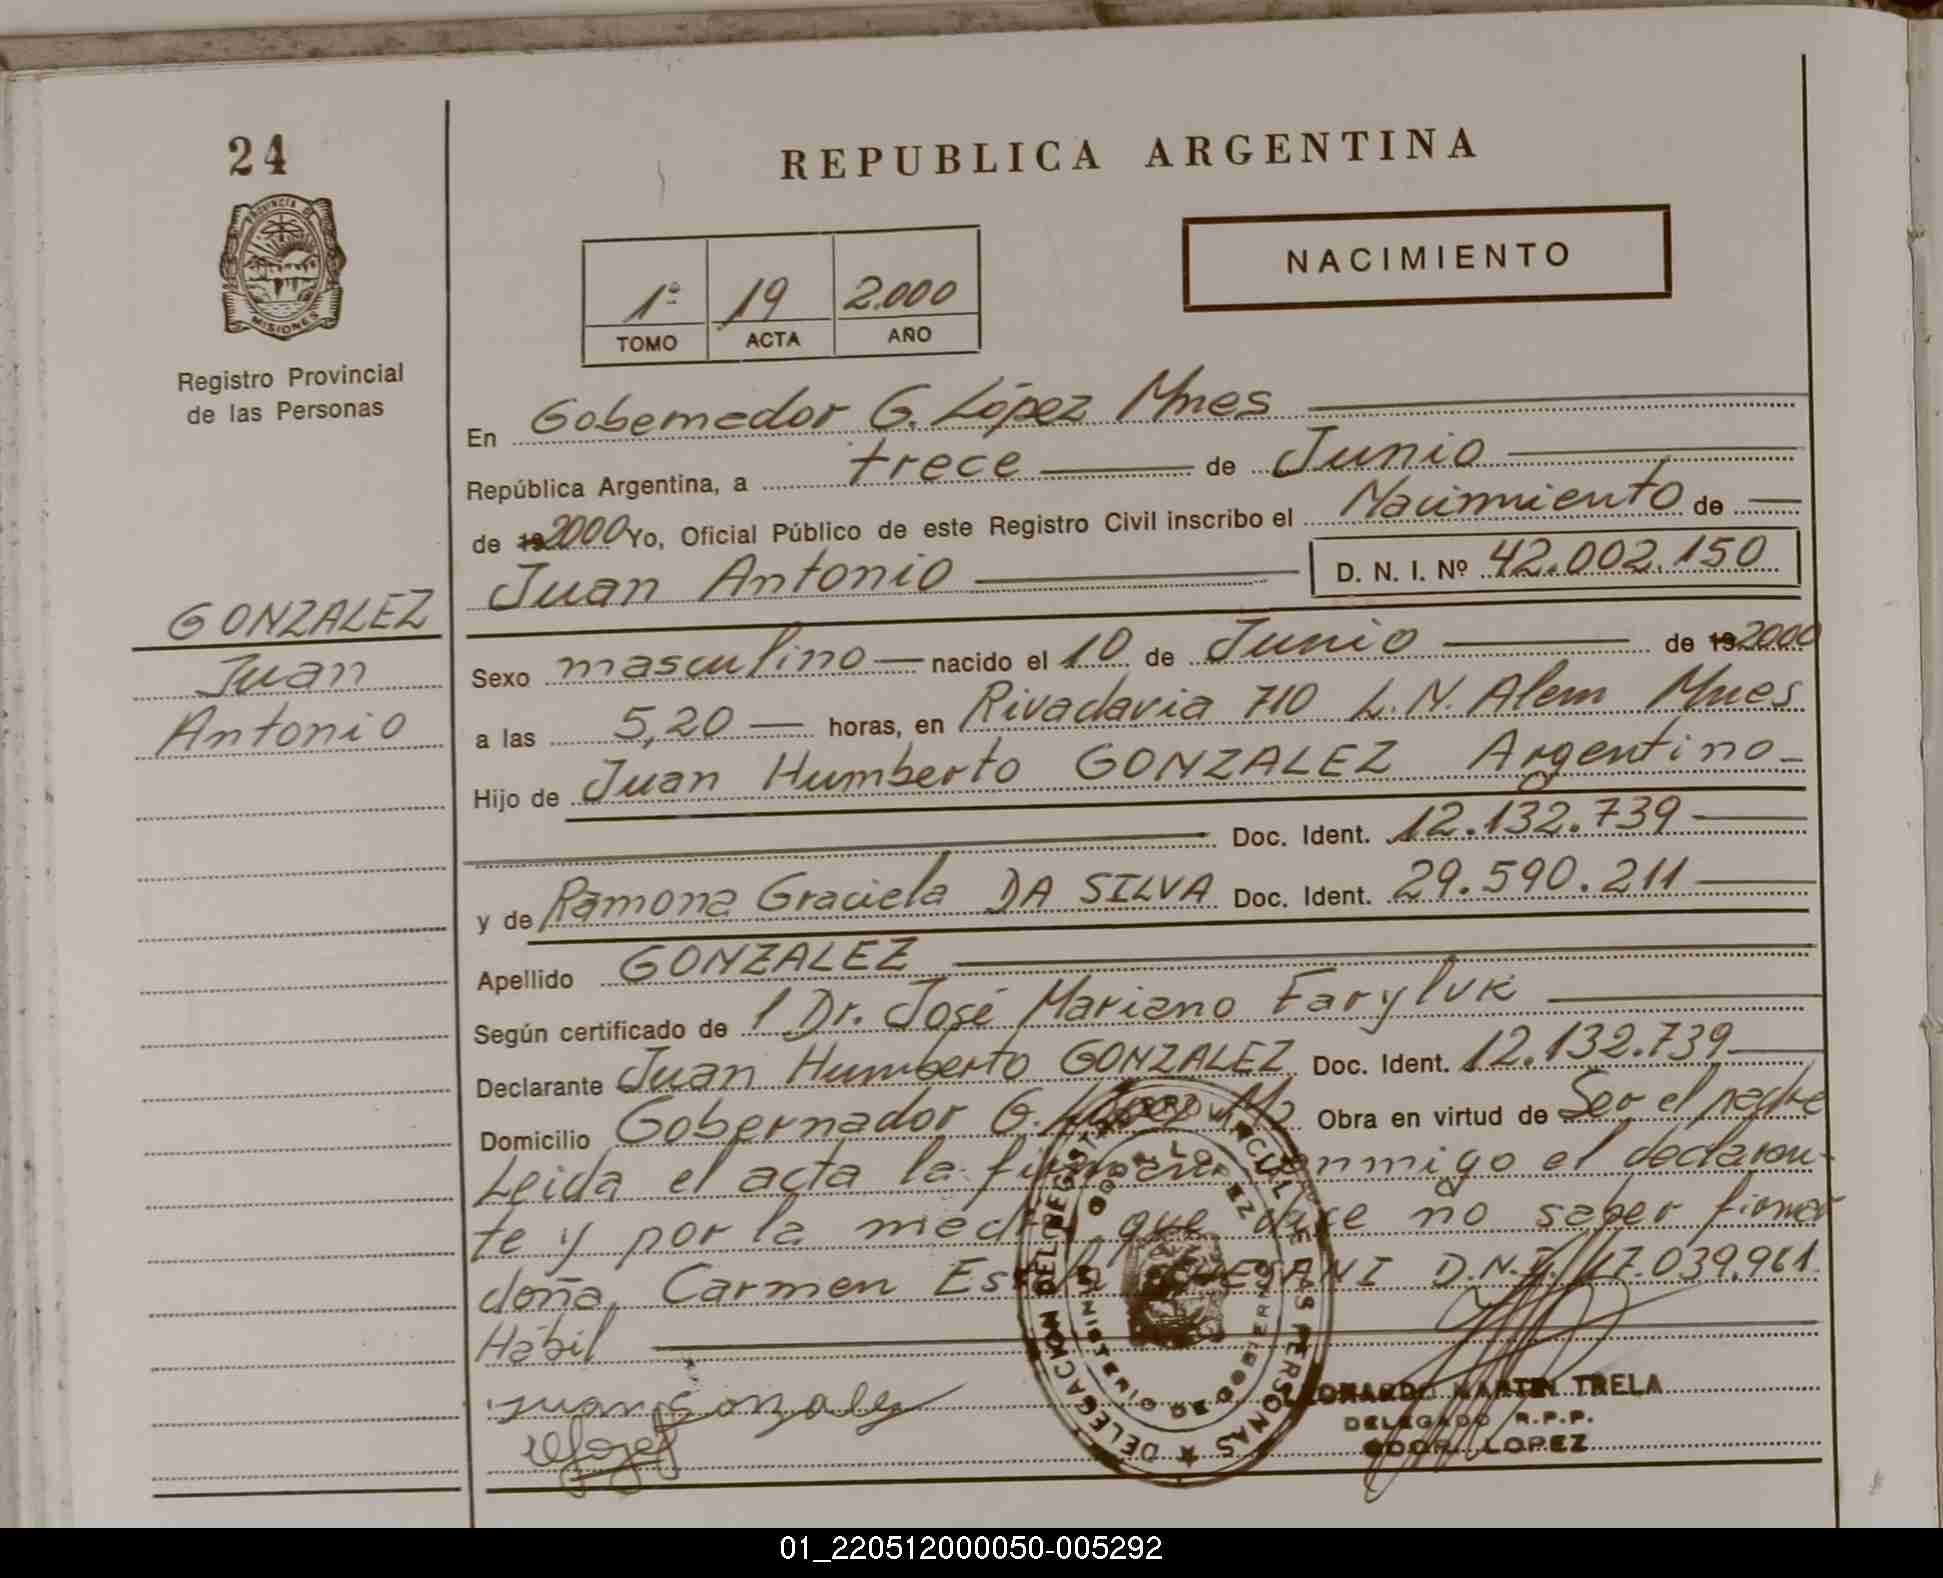 24
REPUBLICA ARGENTINA
PROVINCIA DE
MISIONES
NACIMIENTO
1º 19 2.000
TOMO ACTA AÑO
Registro Provincial
de las Personas
En Gobernador G. López Mnes
República Argentina, a trece de Junio
de 19 2000 Yo, Oficial Público de este Registro Civil inscribo el Nacimiento de
Juan Antonio D. N. I. Nº 42.002.150
GONZALEZ
Juan
Antonio
Sexo masculino nacido el 10 de Junio de 19 2000
a las 5,20 horas, en Rivadavia 710 L.N. Alem Mnes
Hijo de Juan Humberto GONZALEZ Argentino
Doc. Ident. 12.132.739
y de Ramona Graciela DA SILVA Doc. Ident. 29.590.211
Apellido GONZALEZ
Según certificado de Dr. José Mariano Faryluk
Declarante Juan Humberto GONZALEZ Doc. Ident. 12.132.739
Domicilio Gobernador G. López M. Obra en virtud de Ser el padre
Leida el acta la firman conmigo el declaran-
te y por la madre que dice no saber firmar
doña Carmen D.N.I. 17.039.961
Hábil
Juan Gonzalez
DELEGACION DEL REGISTRO PROVINCIAL DE LAS PERSONAS
GDOR. LOPEZ
MINISTERIO DE GOBIERNO
LEONARDO MARTIN TRELA
DELEGADO R.P.P.
GDOR. LOPEZ
01_220512000050-005292